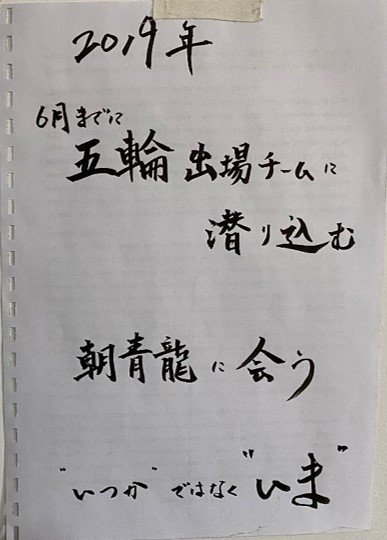 2019年
6月までに
五輪出場チームに
潜り込む
朝青龍に会う
"いつか"ではなく"いま"